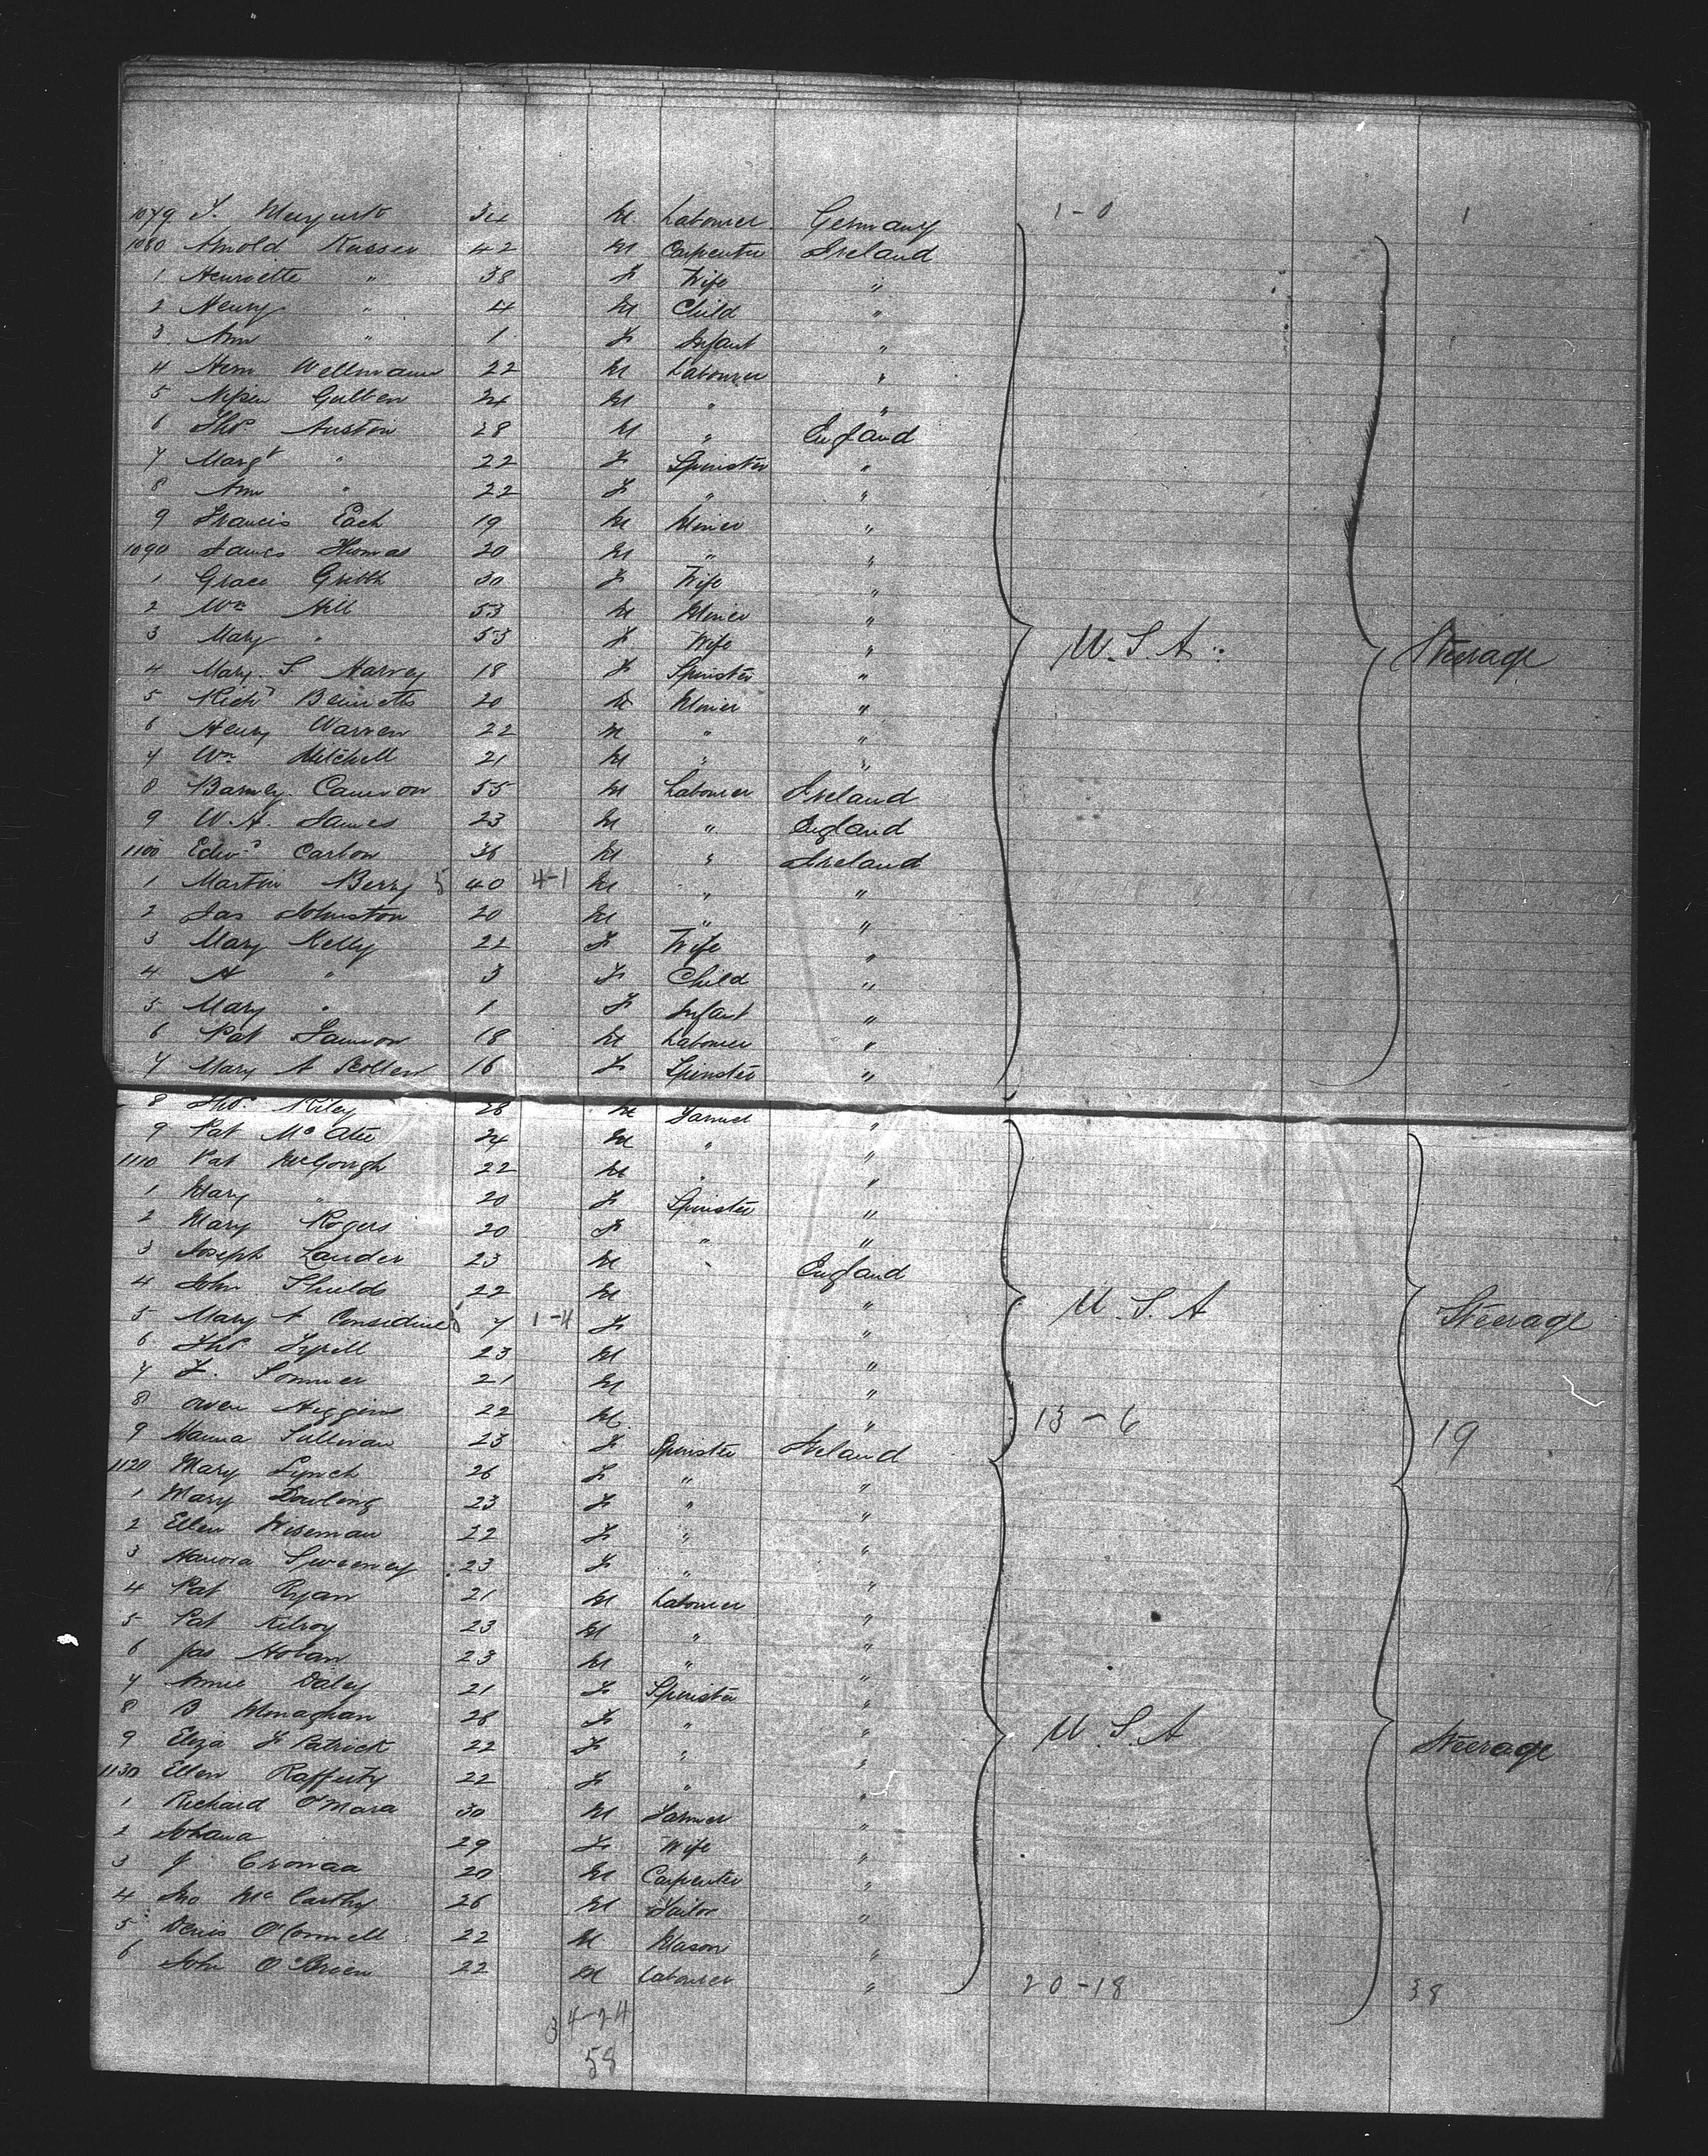 1079 34 M Labourer Germany 1-0 1
1080 Arnold 42 M Carpenter Ireland
1 " 38 F Wife "
2 Henry " 4 M Child "
3 Ann " 1 F Infant "
4 Herm Wellmann 22 M Labourer "
5 24 M " "
6 Thos Auston 28 M " England
7 Margt " 22 F Spinster "
8 Ann " 22 F " "
9 Francis Each 19 M Miner "
1090 James Thomas 20 M " "
1 Grace 30 F Wife "
2 Wm Hill 53 M Miner "
3 Mary " 53 F Wife " U.S.A. Steerage
4 Mary S. Harvey 18 F Spinster "
5 Richd Bennetts 20 M Miner "
6 Henry Warren 22 M " "
7 Wm Mitchell 21 M " "
8 Barney 55 M Labourer Ireland
9 W.H. James 23 M " England
1100 Edwd Carbon 36 M " Ireland
1 Martin Berry 5 40 4-1 M " "
2 Jas Johnston 20 M " "
3 Mary Kelly 22 F Wife "
4 A " 3 F Child "
5 Mary " 1 F Infant "
6 Pat 18 M Labourer "
7 Mary A 16 F Spinster "
8 Thos Riley 28 M Farmer "
9 Pat McAtee 24 M " "
1110 Pat McGough 22 M " "
1 Mary " 20 F Spinster "
2 Mary Rogers 20 F " "
3 Joseph Lauder 23 M " England
4 John Shields 22 M "
5 Mary A Considine 7 1-4 F " U.S.A Steerage
6 Thos Tyrell 23 M "
7 21 M "
8 Owen Higgins 22 M " 13-6 19
9 Hanna Sullivan 23 F Spinster Ireland
1120 Mary Lynch 26 F " "
1 Mary Dowling 23 F " "
2 Ellen Wiseman 22 F " "
3 Honora Sweeney 23 F " "
4 Pat Ryan 21 M Labourer "
5 Pat Kilroy 23 M " "
6 Jas 23 M " "
7 Annie Daley 21 F Spinster "
8 B Monaghan 28 F " "
9 Eliza F Patrick 22 F " " U.S.A Steerage
1130 Ellen Rafferty 22 F " "
1 Richard O'Mara 30 M Farmer "
2 Johana 29 F Wife "
3 J 20 M Carpenter "
4 Jno McCarthy 26 M Tailor "
5 Denis O'Connell 22 M Mason "
6 John O'Brien 22 M Labourer " 20-18 38
34-24
58